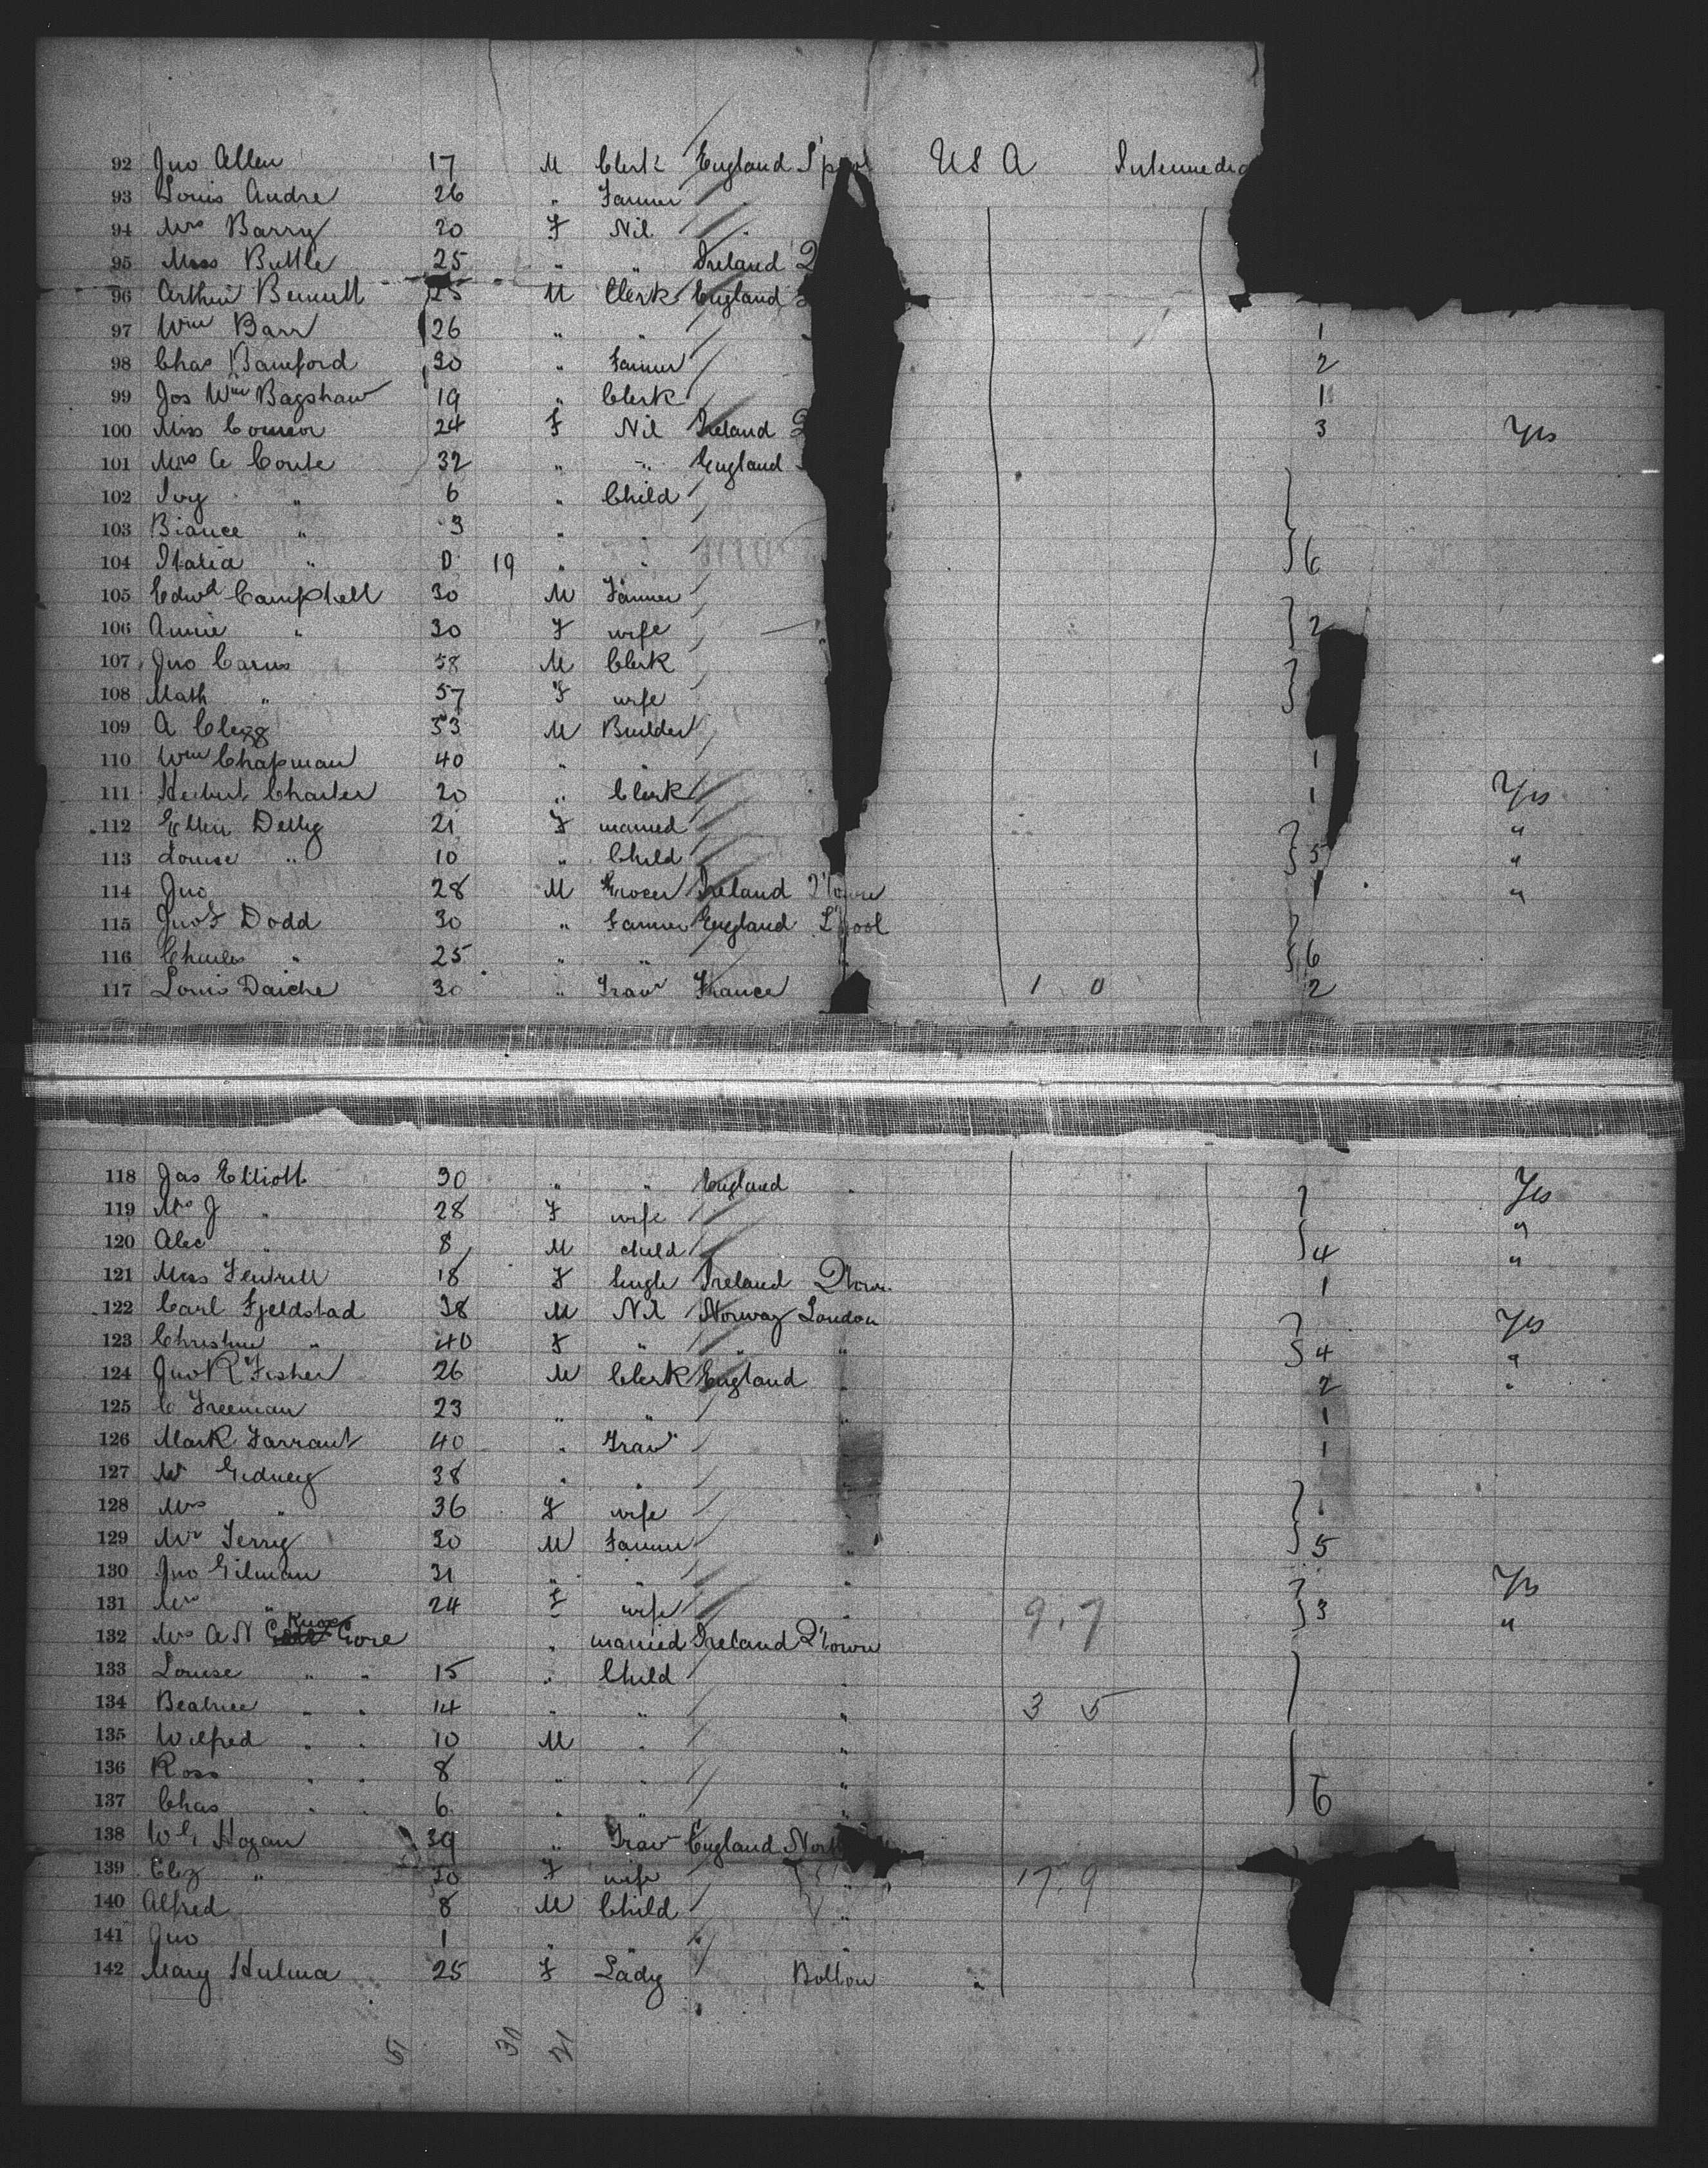 92 Jno Allen 17 M Clerk England L'pool USA Intermedia
93 Louis Andre 26 " Farmer "
94 Mrs Barry 20 F Nil "
95 Miss Buttle 25 " " Ireland Q
96 Arthur Bennett 25 M Clerk England
97 Wm Barr 26 " " 1
98 Chas Bamford 30 " Farmer 2
99 Jos Wm Bagshaw 19 " Clerk 1
100 Miss Connor 24 F Nil Ireland Q 3 Yes
101 Mrs A Conte 32 " " England
102 Ivy " 6 " Child
103 Biance " 3 "
104 Italia " 0 19 " " 6
105 Edwd Campbell 30 M Farmer
106 Annie " 30 F wife 2
107 Jno Carus 58 M Clerk
108 Math " 57 F wife
109 A Clegg 53 M Builder
110 Wm Chapman 40 " " 1
111 Herbert Charter 20 " Clerk 1 Yes
112 Dellig 21 F married "
113 Louise " 10 " Child 5 "
114 Jno 28 M Grocer Ireland Q'town 1 "
115 Jno F Dodd 30 " Farmer England L'pool
116 Charles " 25 " " " 6
117 Louis Daiche 30 " Trav France 1 0 2
118 Jas Elliott 30 " " England " Yes
119 Mrs J " 28 F wife "
120 Alec " 8 M child 4 "
121 Miss 18 F Single Ireland Q'town 1
122 Carl Fjeldstad 38 M Nil Norway London Yes
123 Christine " 40 F " " " 4 "
124 Jno R Fisher 26 M Clerk England " 2 "
125 C Freeman 23 " " " 1
126 Mark Farrant 40 " Trav 1
127 Mr Gidney 38 " "
128 Mrs " 36 F wife
129 Mr Terry 30 M Farmer " 5
130 Jno Gilman 31 " " " Yes
131 Mrs " 24 F wife " 9.7 3 "
132 Mrs A N Knox Gore " married Ireland Q'town
133 Louise " " 15 " Child "
134 Beatrice " " 14 " " " 3 5
135 Wilfred " " 10 M " "
136 Ross " " 8 " " "
137 Chas " " 6 " " " 6
138 W G Hogan 39 " Trav England
139 Eliz " 30 F wife " 17.9
140 Alfred 8 M Child "
141 Jno 1 " " "
142 Mary Hulma 25 F Lady Bolton
51 30 21